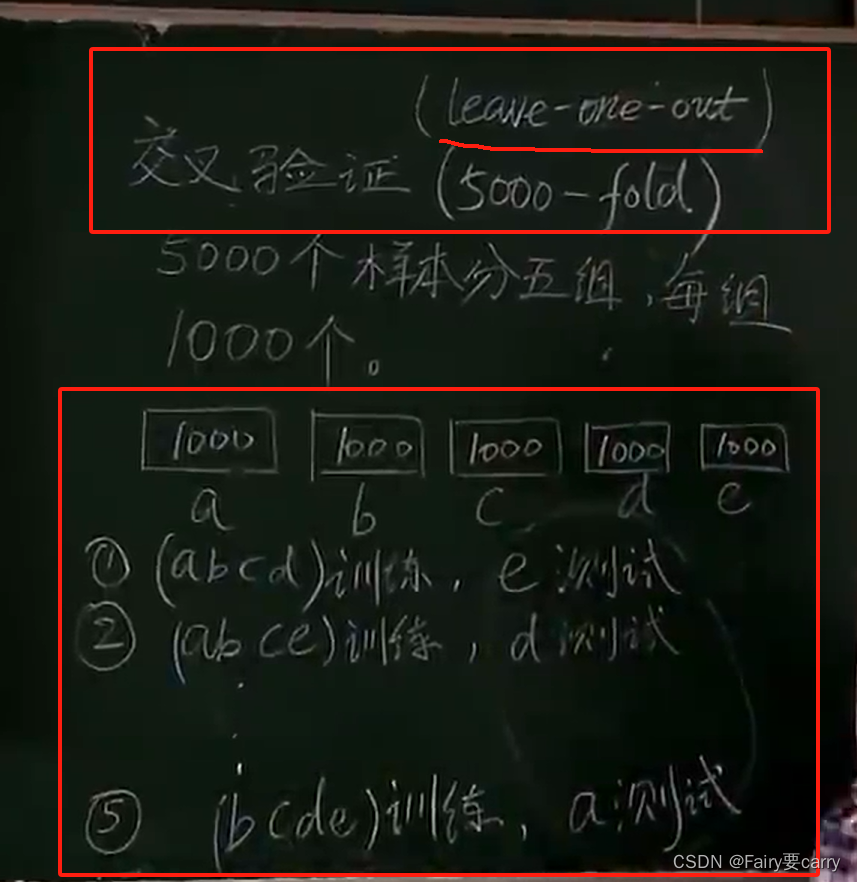 (leave-one-out)
交叉验证 (5000-fold)
5000个样本分五组,每组
1000个。
1000 1000 1000 1000 1000
a b c d e
① (abcd)训练, e测试
② (abce)训练, d测试
⑤ (bcde)训练, a测试
CSDN @Fairy要carry